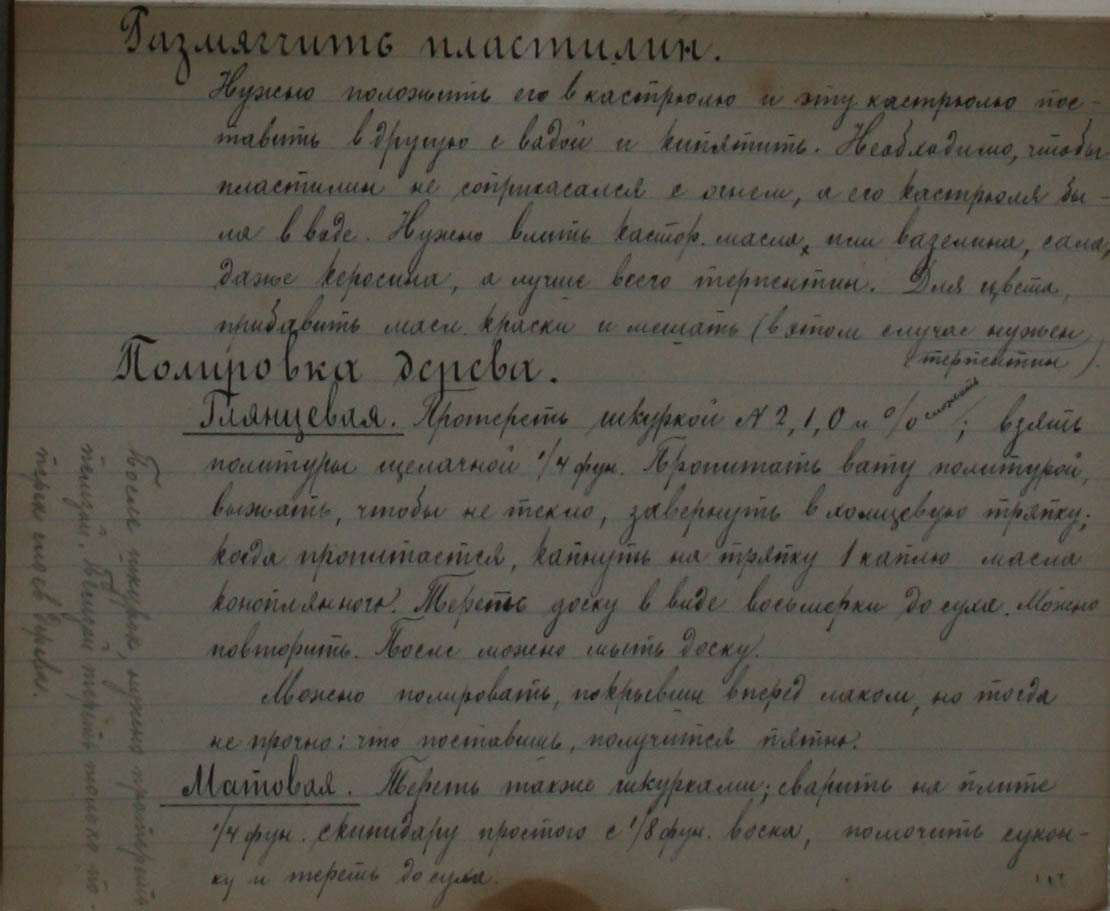 Размягчить пластилин.
Нужно положить его в кастрюлю и эту кастрюлю пос-
тавить в другую с водой и кипятить. Необходимо, чтобы
пластилин не соприкасался с огнем, а его кастрюля бы-
ла в воде. Нужно влить кастор. масла, или вазелина, сала,
даже керосина, а лучше всего терпентин. Для цвета,
прибавить масл. краски и мешать (в этом случае нужен
терпентин).
Полировка дерева.
Глянцевая. Протереть шкуркой № 2, 1, 0 и %; взять
сложить
политуры щелачной 1/4 фун. Пропитать вату политурой,
выжать, чтобы не текло, завернуть в холщевую тряпку;
когда пропитается, капнуть на тряпку 1 каплю масла
коноплянного. Тереть доску в виде восьмерки до суха. Можно
повторить. После можно мыть доску.
Можно полировать, покрывши вперед лаком, но тогда
не прочно: что поставишь, получится пятно.
Матовая. Тереть также шкурками; сварить на плите
1/4 фун. скипидару простого с 1/8 фун. воска, помочить сукон-
ку и тереть до суха.
После шкурок, нужно протереть
пемзой. Пемзой тереть только по-
перек слоев дерева.